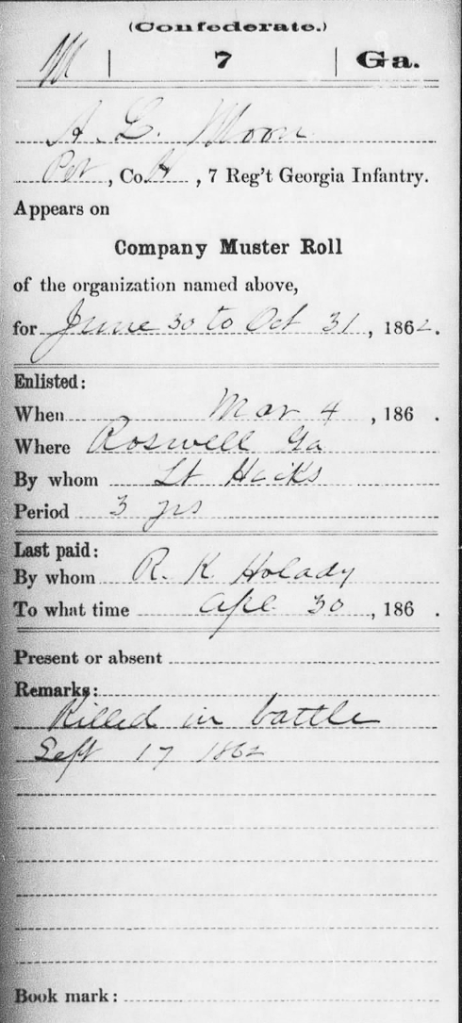 (Confederate.)
M | 7 | Ga.
A. L. Moon
Pvt, Co. H, 7 Reg't Georgia Infantry.
Appears on
Company Muster Roll
of the organization named above,
for June 30 to Oct 31, 1862.
Enlisted:
When Mar 4, 186 .
Where Roswell Ga
By whom Lt Hicks
Period 3 yrs
Last paid:
By whom R. K. Holady
To what time Apl 30, 186 .
Present or absent
Remarks:
Killed in battle
Sept 17 1862
Book mark: